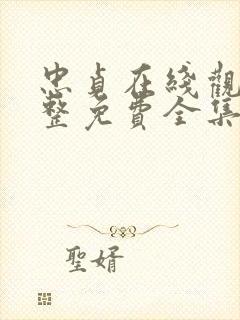 忠貞在綫觀
整免費全集
聖婿